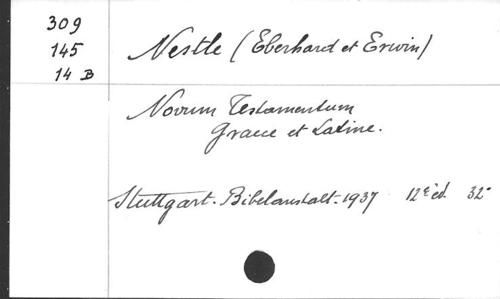 309
145
14 B
Nestle (Eberhard et Erwin)
Novum Testamentum
graece et Latine.
Stuttgart. Bibelanstalt. 1937 12e éd. 32°